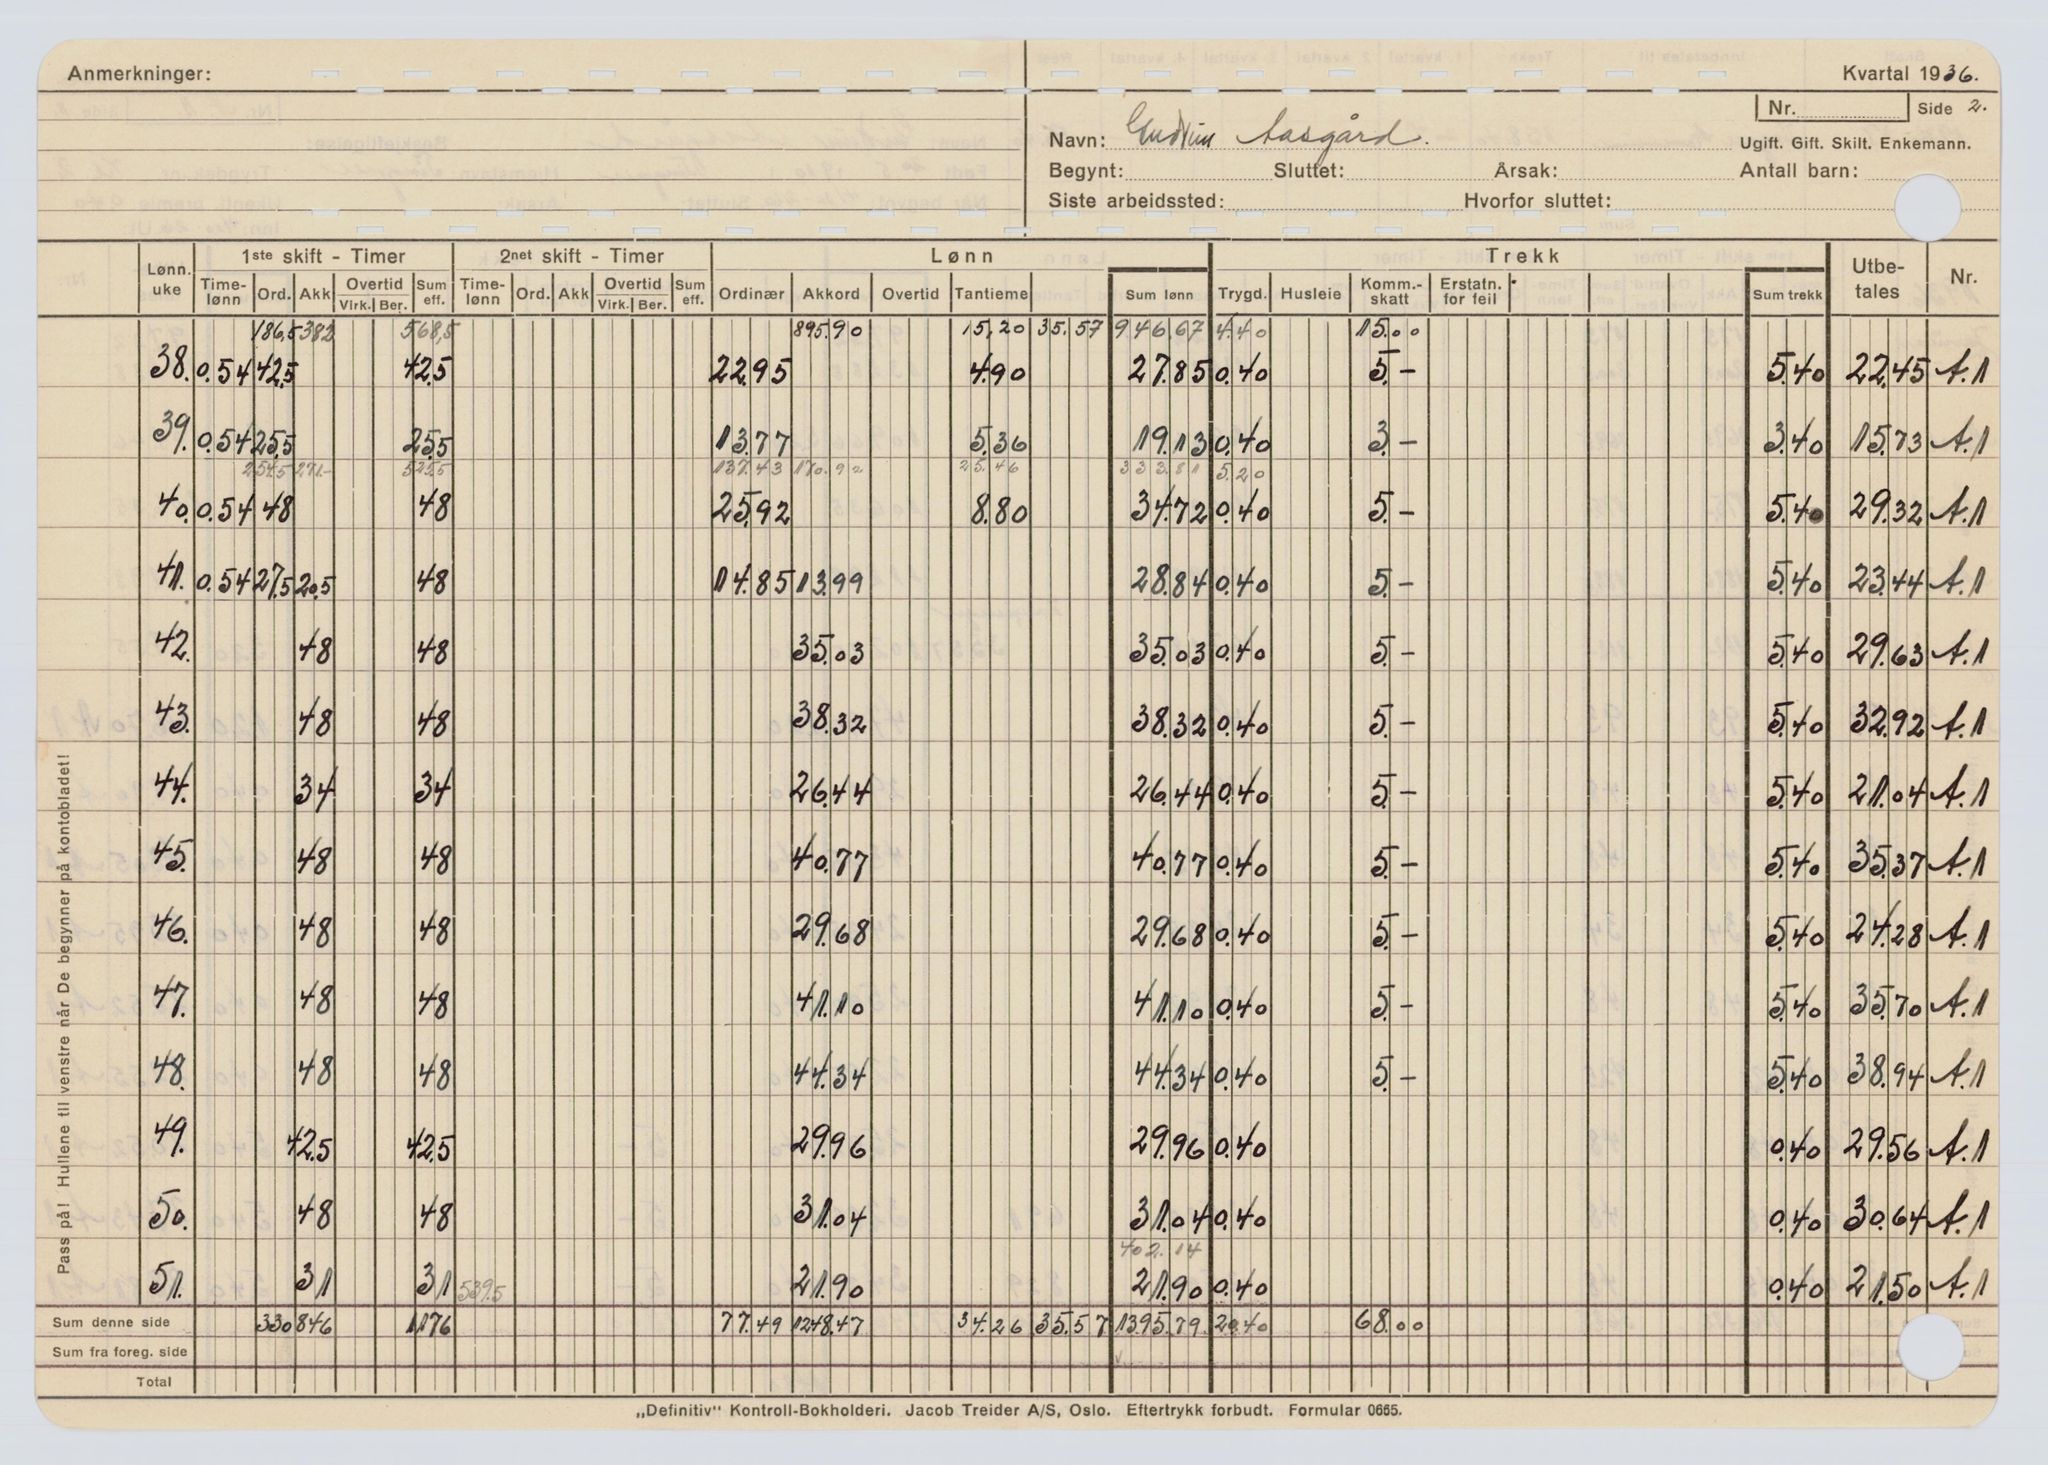 Anmerkninger:
Kvartal 1936.
Nr. Side 2.
Navn: Gudrun Aasgård.
Ugift. Gift. Skilt. Enkemann.
Begynt: Sluttet: Årsak: Antall barn:
Siste arbeidssted: Hvorfor sluttet:
1ste skift - Timer 2net skift - Timer Lønn Trekk
Lønn. uke Time-lønn Ord. Akk Overtid Virk. Ber. Sum eff. Time-lønn Ord. Akk Overtid Virk. Ber. Sum eff. Ordinær Akkord Overtid Tantieme Sum lønn Trygd. Husleie Komm.-skatt Erstatn. for feil Sum trekk Utbe-tales Nr.
186,5 382 568,5 895.90 15,20 35.57 946.67 4.40 15.00
38. 0.54 42.5 42.5 22.95 4.90 27.85 0.40 5.- 5.40 22.45 A.1
39. 0.54 25.5 25.5 13.77 5.36 19.13 0.40 3.- 3.40 15.73 A.1
254.5 271.- 525.5 137.43 170.92 25.46 333.81 5.20
40. 0.54 48 48 25.92 8.80 34.72 0.40 5.- 5.40 29.32 A.1
41. 0.54 27.5 20.5 48 14.85 13.99 28.84 0.40 5.- 5.40 23.44 A.1
42. 48 48 35.03 35.03 0.40 5.- 5.40 29.63 A.1
43. 48 48 38.32 38.32 0.40 5.- 5.40 32.92 A.1
44. 34 34 26.44 26.44 0.40 5.- 5.40 21.04 A.1
45. 48 48 40.77 40.77 0.40 5.- 5.40 35.37 A.1
46. 48 48 29.68 29.68 0.40 5.- 5.40 24.28 A.1
47. 48 48 41.10 41.10 0.40 5.- 5.40 35.70 A.1
48. 48 48 44.34 44.34 0.40 5.- 5.40 38.94 A.1
49. 42.5 42.5 29.96 29.96 0.40 0.40 29.56 A.1
50. 48 48 31.04 31.04 0.40 0.40 30.64 A.1
402.14
51. 31 31 539.5 21.90 21.90 0.40 0.40 21.50 A.1
Sum denne side 330 846 1176 77.49 1248.47 34.26 35.57 1395.79. 20.40 68.00
Sum fra foreg. side
Total
„Definitiv" Kontroll-Bokholderi. Jacob Treider A/S, Oslo. Eftertrykk forbudt. Formular 0665.
Pass på! Hullene til venstre når De begynner på kontobladet!